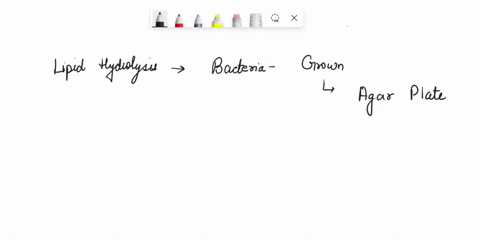 Lipid Hydrolysis → Bacteria - Grown
↳ Agar Plate